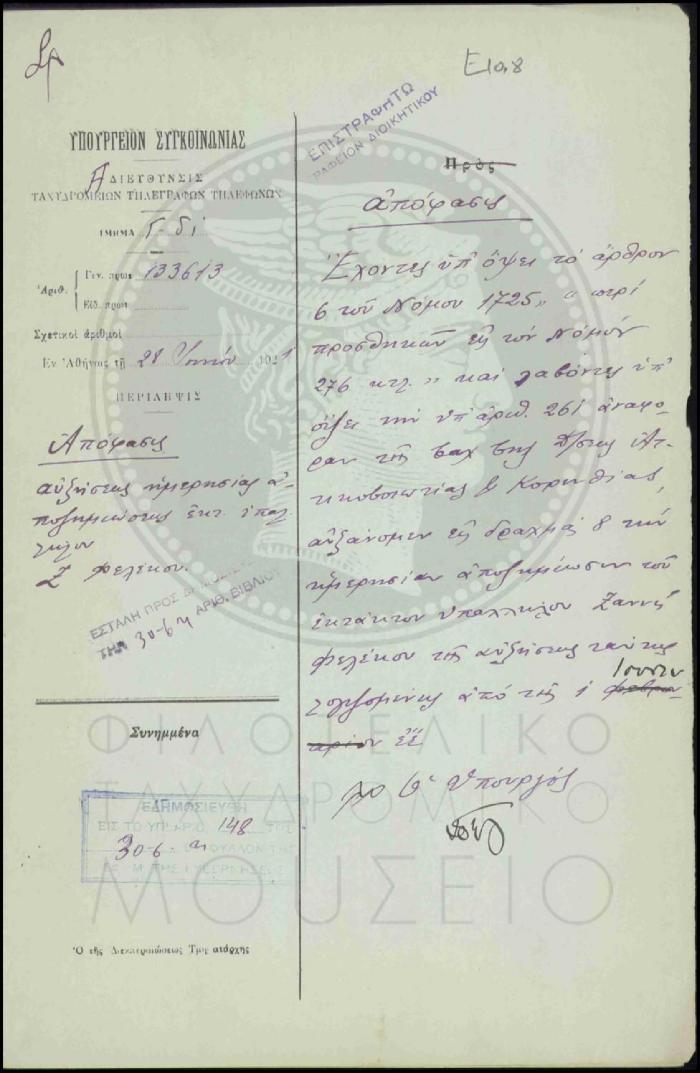 Ε10.8
ΕΠΙΣΤΡΑΦΗΤΩ
ΓΡΑΦΕΙΟΝ ΔΙΟΙΚΗΤΙΚΟΥ
ΥΠΟΥΡΓΕΙΟΝ ΣΥΓΚΟΙΝΩΝΙΑΣ
Α ΔΙΕΥΘΥΝΣΙΣ
ΤΑΧΥΔΡΟΜΕΙΩΝ ΤΗΛΕΓΡΑΦΩΝ ΤΗΛΕΦΩΝΩΝ
ΤΜΗΜΑ
Ἀριθ.
Γεν. πρωτ 133613
Εἰδ. πρωτ
Σχετικοὶ ἀριθμοὶ
Ἐν Ἀθήναις τῇ 28 Ἰουνίου 1921
ΠΕΡΙΛΗΨΙΣ
Ἀπόφασις
αὐξήσεως ἡμερησίας ἀ-
ποζημιώσεως ἐκτ. ὑπαλ-
λήλου
Ζ Φελέκου.
ΕΣΤΑΛΗ ΠΡΟΣ
ΤΗΝ 30-6 ΑΡΙΘ. ΒΙΒΛΙΟΥ
Συνημμένα
ΕΔΗΜΟΣΙΕΥΘΗ
ΕΙΣ ΤΟ ΥΠ' ΑΡΙΘ. 148
30-6- ΦΥΛΛΟΝ ΤΗΣ
ΤΗΣ ΚΥΒΕΡΝΗΣΕΩΣ
Ὁ τῆς Διεκπεραιώσεως Τμηματάρχης
Πρὸς
ἀπόφασις
Ἔχοντες ὑπ' ὄψει τὸ ἄρθρον
6 τοῦ Νόμου 1725 " περὶ
προσθηκῶν εἰς τὸν Νόμον
276 κτλ. " καὶ λαβόντες ὑπ'
ὄψει τὴν ὑπ' ἀριθ. 261 ἀναφο-
ρὰν τῆς ταχ κῆς Δ/σεως Ἀτ-
τικοβοιωτίας & Κορινθίας,
αὐξάνομεν εἰς δραχμὰς 8 τὴν
ἡμερησίαν ἀποζημίωσιν τοῦ
ἐκτάκτου ὑπαλλήλου Ζαννῆ
Φελέκου τῆς αὐξήσεως ταύτης
λογιζομένης ἀπὸ τῆς 1 Ἰουνίου
ἐ.ἔ.
Ὁ Ὑπουργός
ΦΙΛΟΤΕΛΙΚΟ
ΤΑΧΥΔΡΟΜΙΚΟ
ΜΟΥΣΕΙΟ